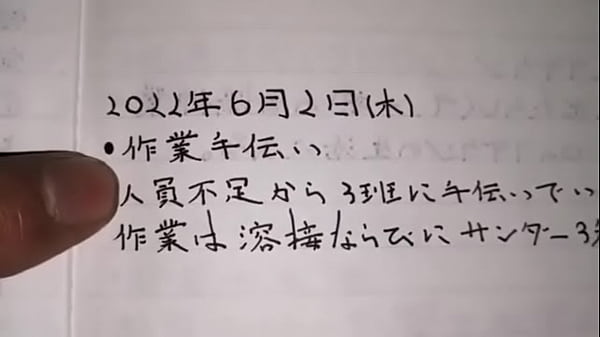 2022年6月2日(木)
•作業手伝い
人員不足から3班に手伝いでい
作業は溶接ならびにサンダー3